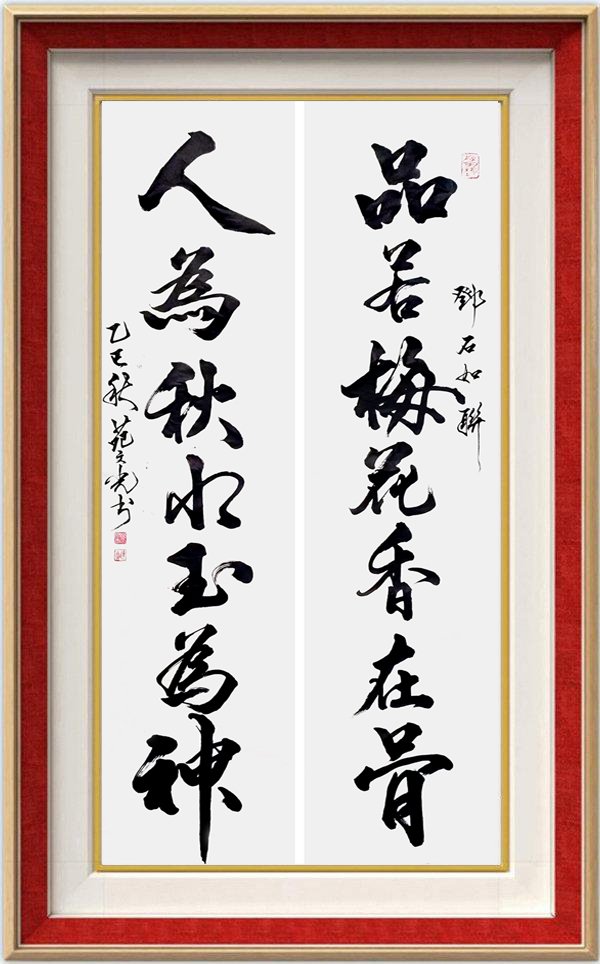 品若梅花香在骨
鄧石如聯
人為秋水玉為神
乙巳秋范文光書